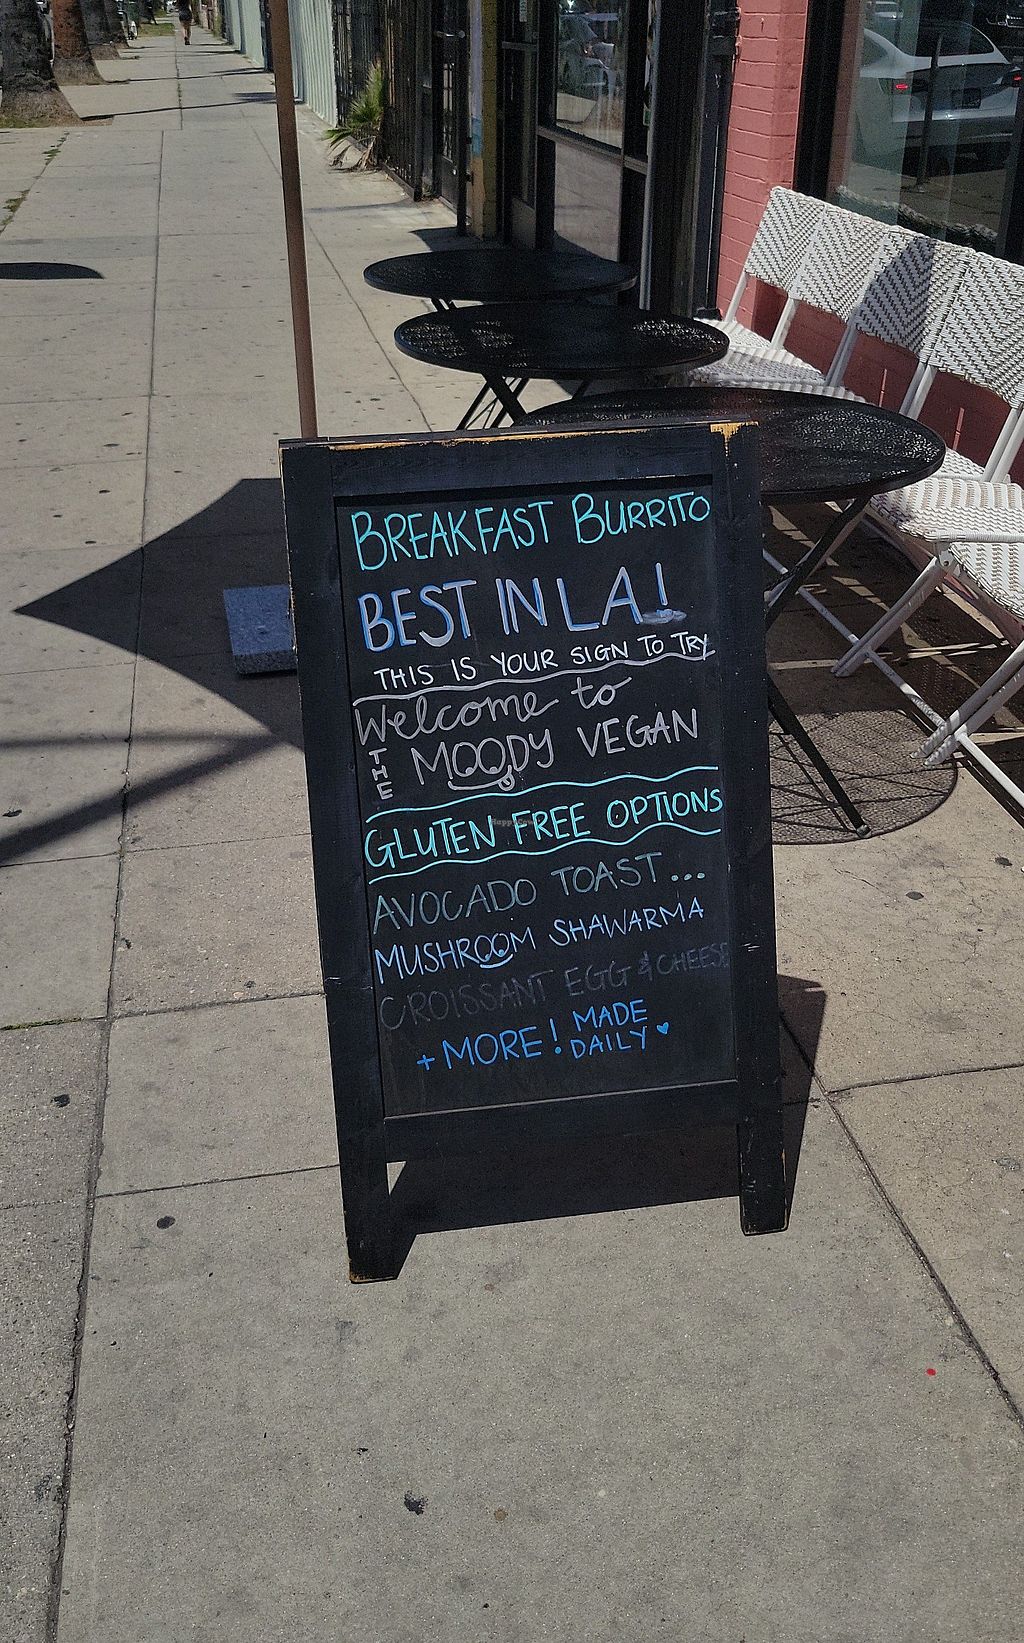 BREAKFAST BURRITO
BEST IN LA!
THIS IS YOUR SIGN TO TRY
Welcome to
THE MOODY VEGAN
GLUTEN FREE OPTIONS
AVOCADO TOAST...
MUSHROOM SHAWARMA
CROISSANT EGG & CHEESE
+ MORE! MADE DAILY
HappyCow